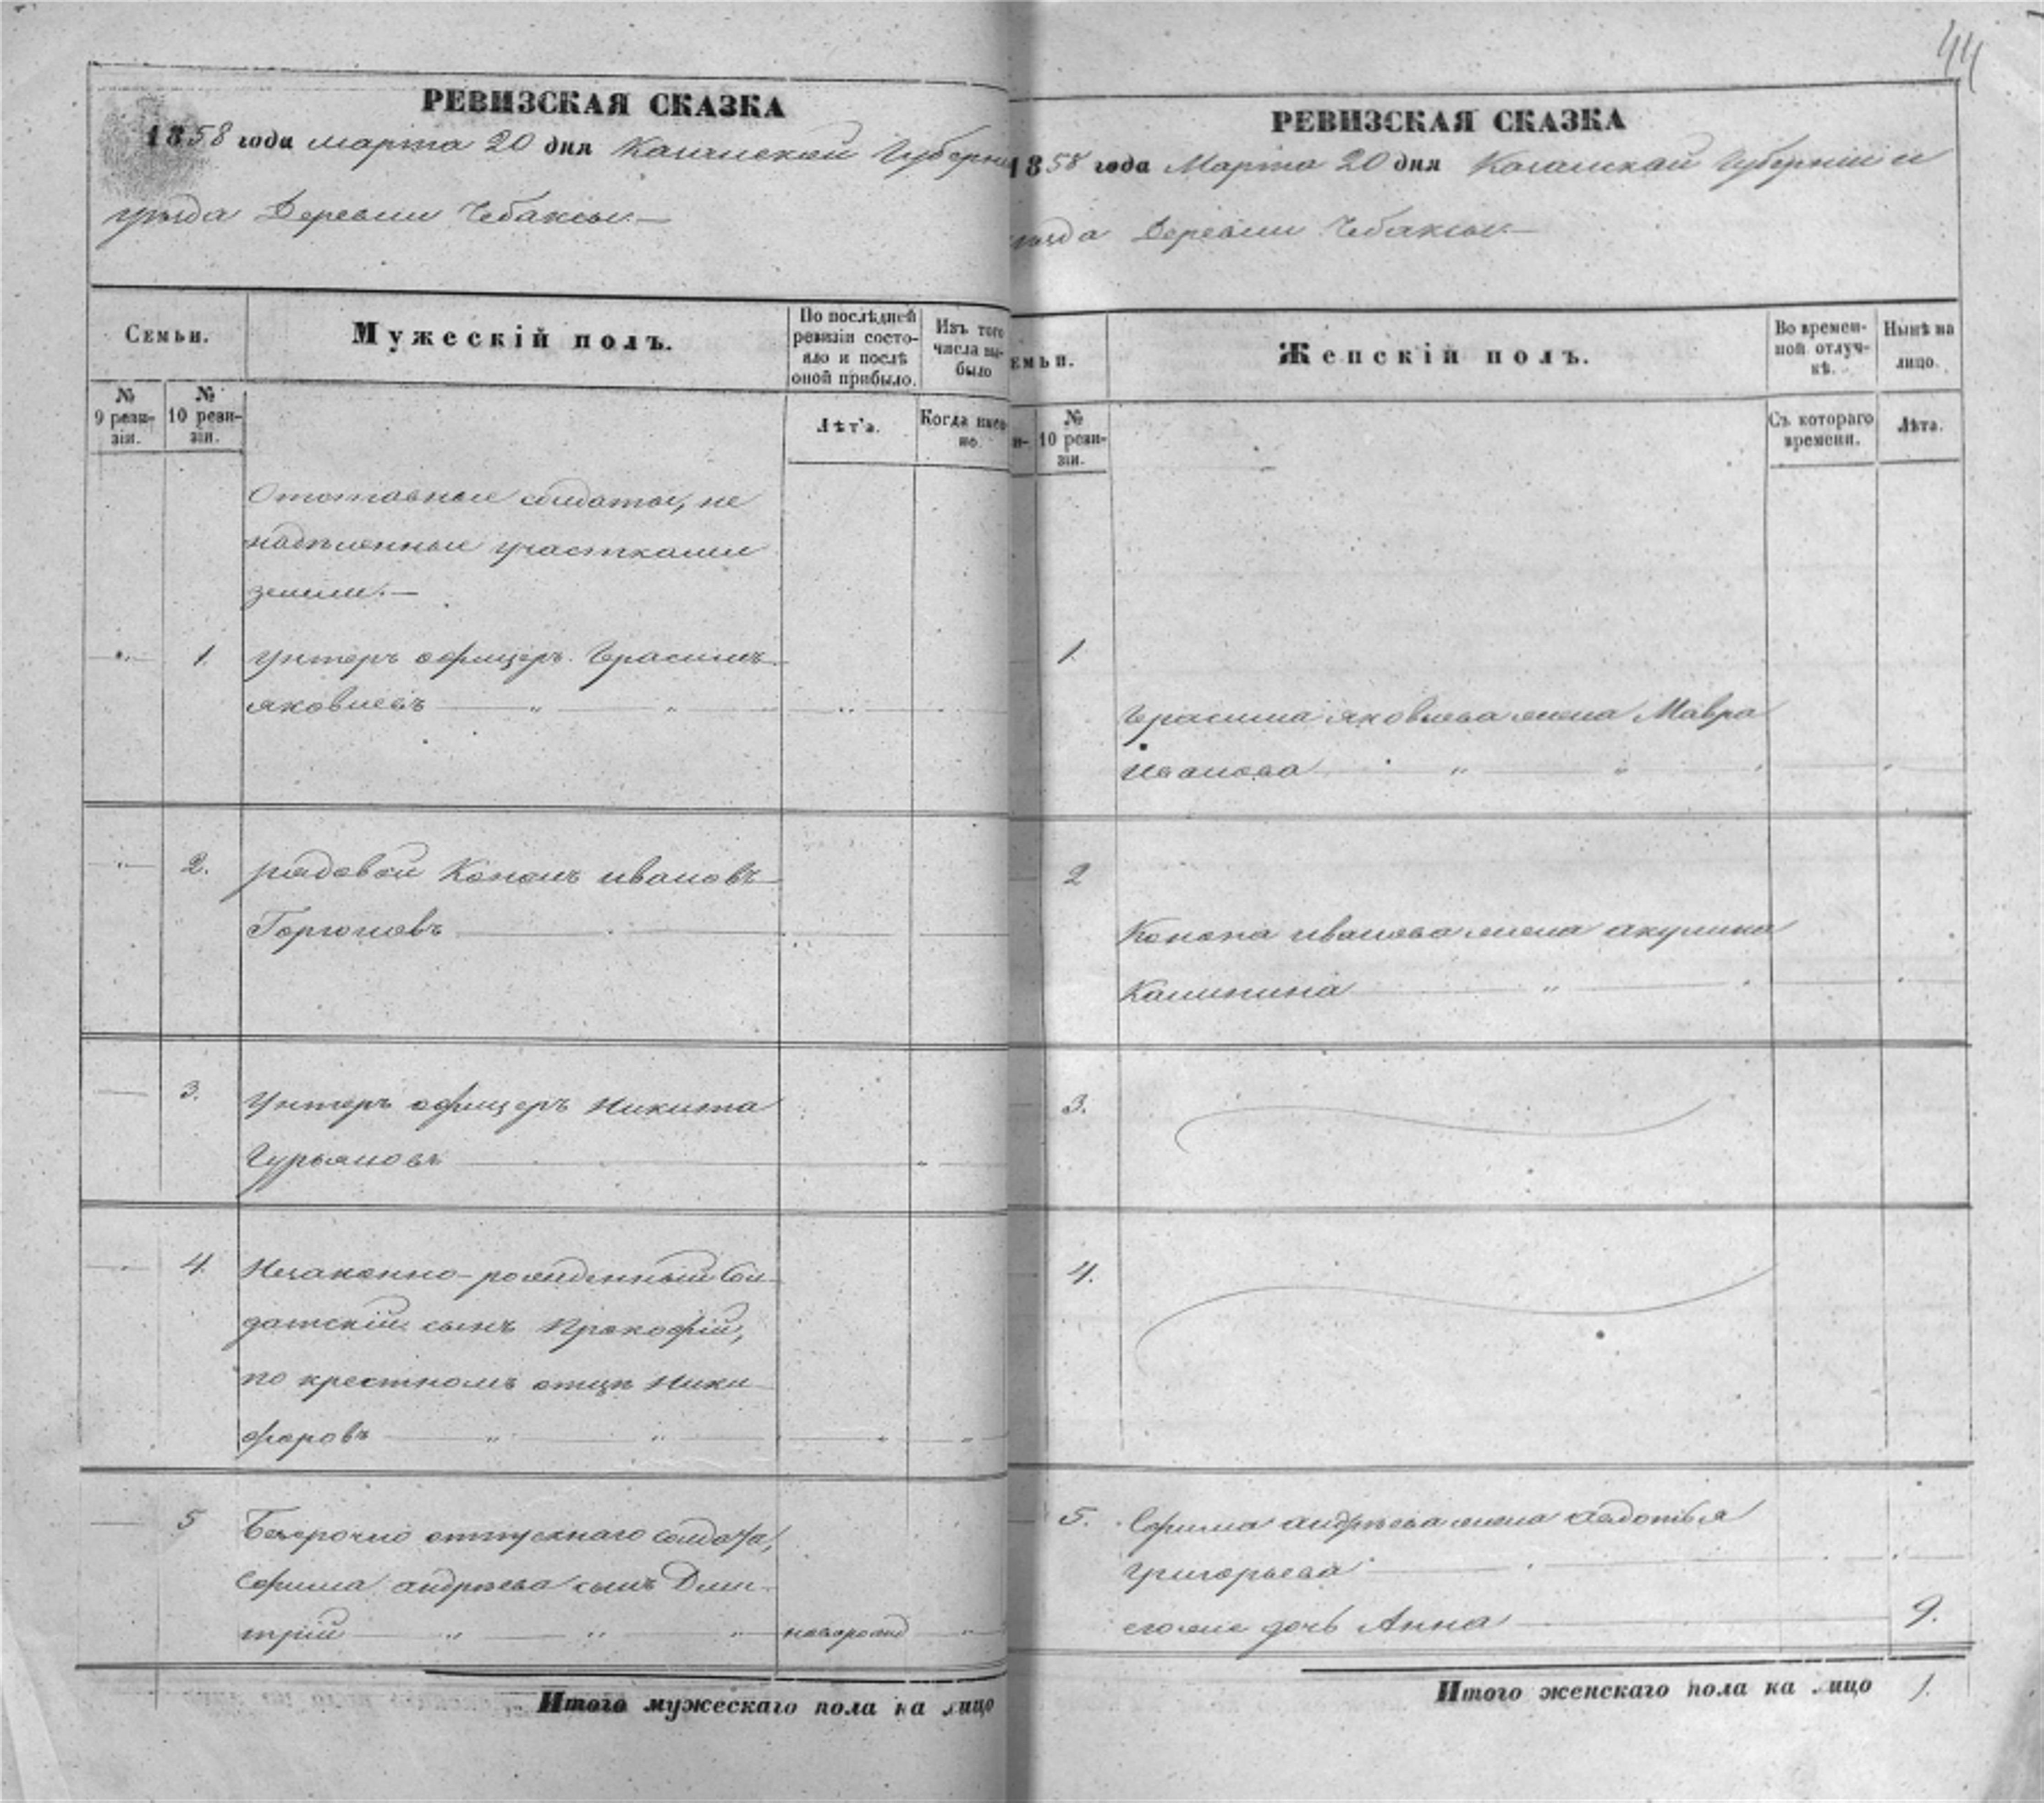 44
РЕВИЗСКАЯ СКАЗКА
1858 года марта 20 дня Казанской Губерни
уѣзда Деревни Чебаксы.—
Семьи.
Мужескій полъ.
По послѣдней ревизіи состояло и послѣ оной прибыло.
Изъ того числа выбыло
№ 9 ревизіи.
№ 10 ревизіи.
Лѣта.
Когда именно.
Отставные солдаты, не
надѣленные участками
земли.—
1. Унтеръ офицеръ Герасимъ
Яковлевъ
2. рядовой Кононъ Ивановъ
3. Унтеръ офицеръ Никита
Гурьяновъ
4. Незаконно-рожденный Сол-
датскій сынъ Прокофій,
по крестномъ отцѣ Ники-
форовъ
5 Безсрочно отпускнаго солдата,
Ефима Андреева сынъ Дми-
трій новорожд
Итого мужескаго пола на лицо
РЕВИЗСКАЯ СКАЗКА
1858 года Марта 20 дня Казанской Губерніи и
уѣзда Деревни Чебаксы.—
емьи.
Женскій полъ.
Во временной отлучкѣ.
Нынѣ на лицо.
№ 10 ревизіи.
Съ котораго времени.
Лѣта.
1.
Герасима Яковлева жена Мавра
Иванова
2
Конона Иванова жена Акулина
Калинина
3.
4.
5. Ефима Андреева жена Авдотья
Григорьева
его же дочь Анна 9.
Итого женскаго пола на лицо 1.